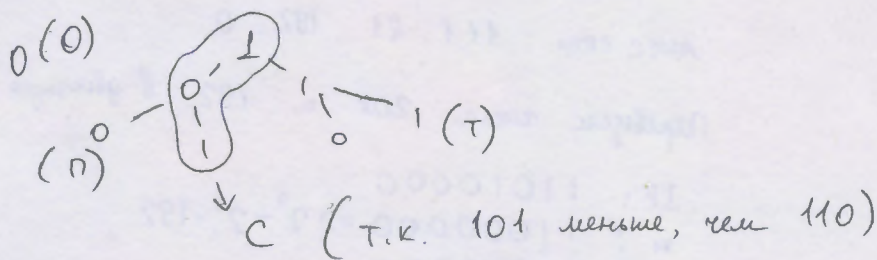 0 (О) 1
0 1
0 0 1 (Т)
(П) 1
С (т.к. 101 меньше, чем 110)